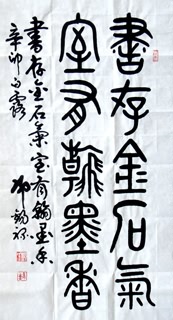 書存金石氣
室有翰墨香
書存金石氣室有翰墨香
辛卯白露